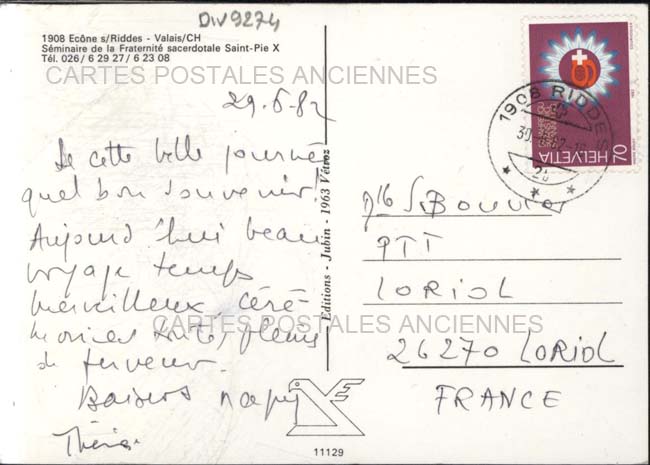 DIV9274
1908 Ecône s/Riddes - Valais/CH
Séminaire de la Fraternité sacerdotale Saint-Pie X
Tél. 026/ 6 29 27/ 6 23 08
CARTES POSTALES ANCIENNES
29.6.82
De cette belle journée
quel bon souvenir.
Aujourd'hui beau
voyage temps
merveilleux, céré-
monies
de ferveur.
Baisers
Editions - Jubin - 1963 Vétroz
1908 RIDDES
HELVETIA 70
PTT
LORIOL
26270 LORIOL
FRANCE
CARTES POSTALES ANCIENNES
11129